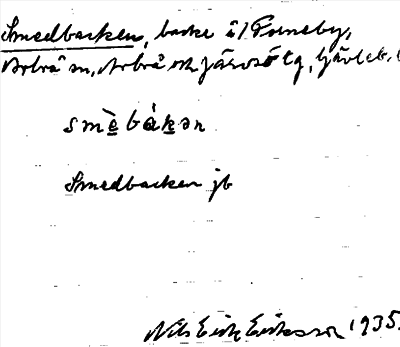 Smedbacken, backe å/ Forneby,
Arbrå sn, Arbrå och Järvsö tg, Gävleb. l
smèbákən
Smedbacken jb
Nils Erik Eriksson 1935.